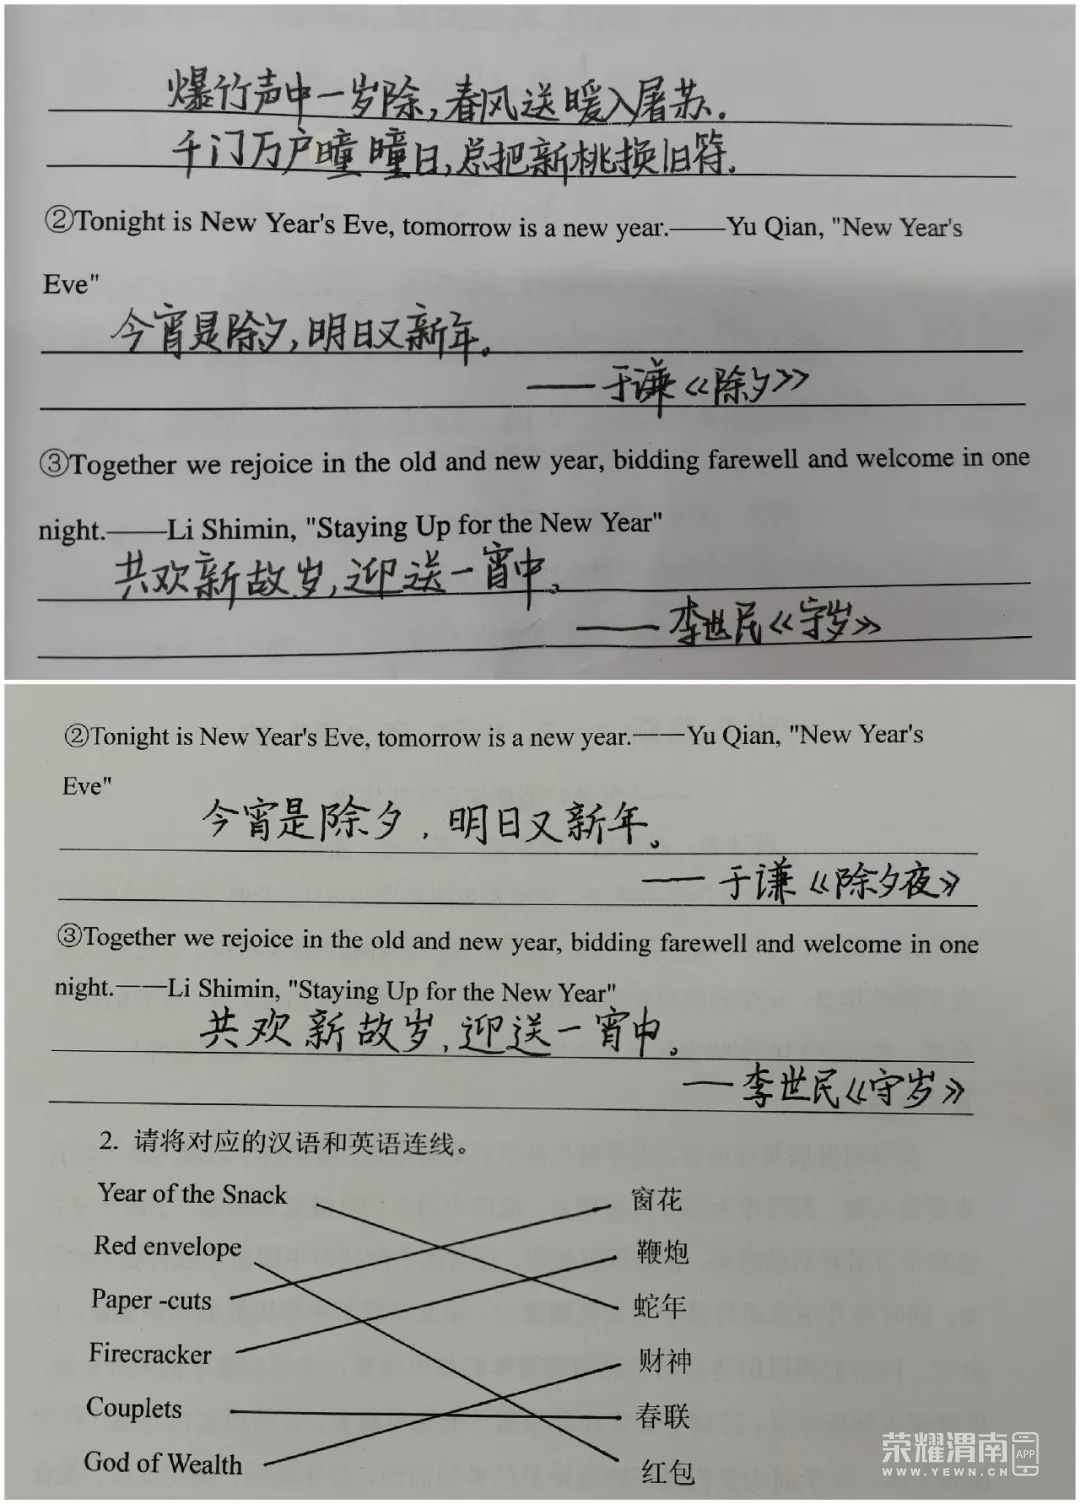 爆竹声中一岁除,春风送暖入屠苏.
千门万户曈曈日,总把新桃换旧符.
②Tonight is New Year's Eve, tomorrow is a new year.——Yu Qian, "New Year's
Eve"
今宵是除夕,明日又新年。
——于谦《除夕》
③Together we rejoice in the old and new year, bidding farewell and welcome in one
night.——Li Shimin, "Staying Up for the New Year"
共欢新故岁,迎送一宵中。
——李世民《守岁》
②Tonight is New Year's Eve, tomorrow is a new year.——Yu Qian, "New Year's
Eve"
今宵是除夕,明日又新年。
——于谦《除夕夜》
③Together we rejoice in the old and new year, bidding farewell and welcome in one
night.——Li Shimin, "Staying Up for the New Year"
共欢新故岁,迎送一宵中。
——李世民《守岁》
2. 请将对应的汉语和英语连线。
Year of the Snack 窗花
Red envelope 鞭炮
Paper -cuts 蛇年
Firecracker 财神
Couplets 春联
God of Wealth 红包
荣耀渭南 APP
WWW.YEWN.CN